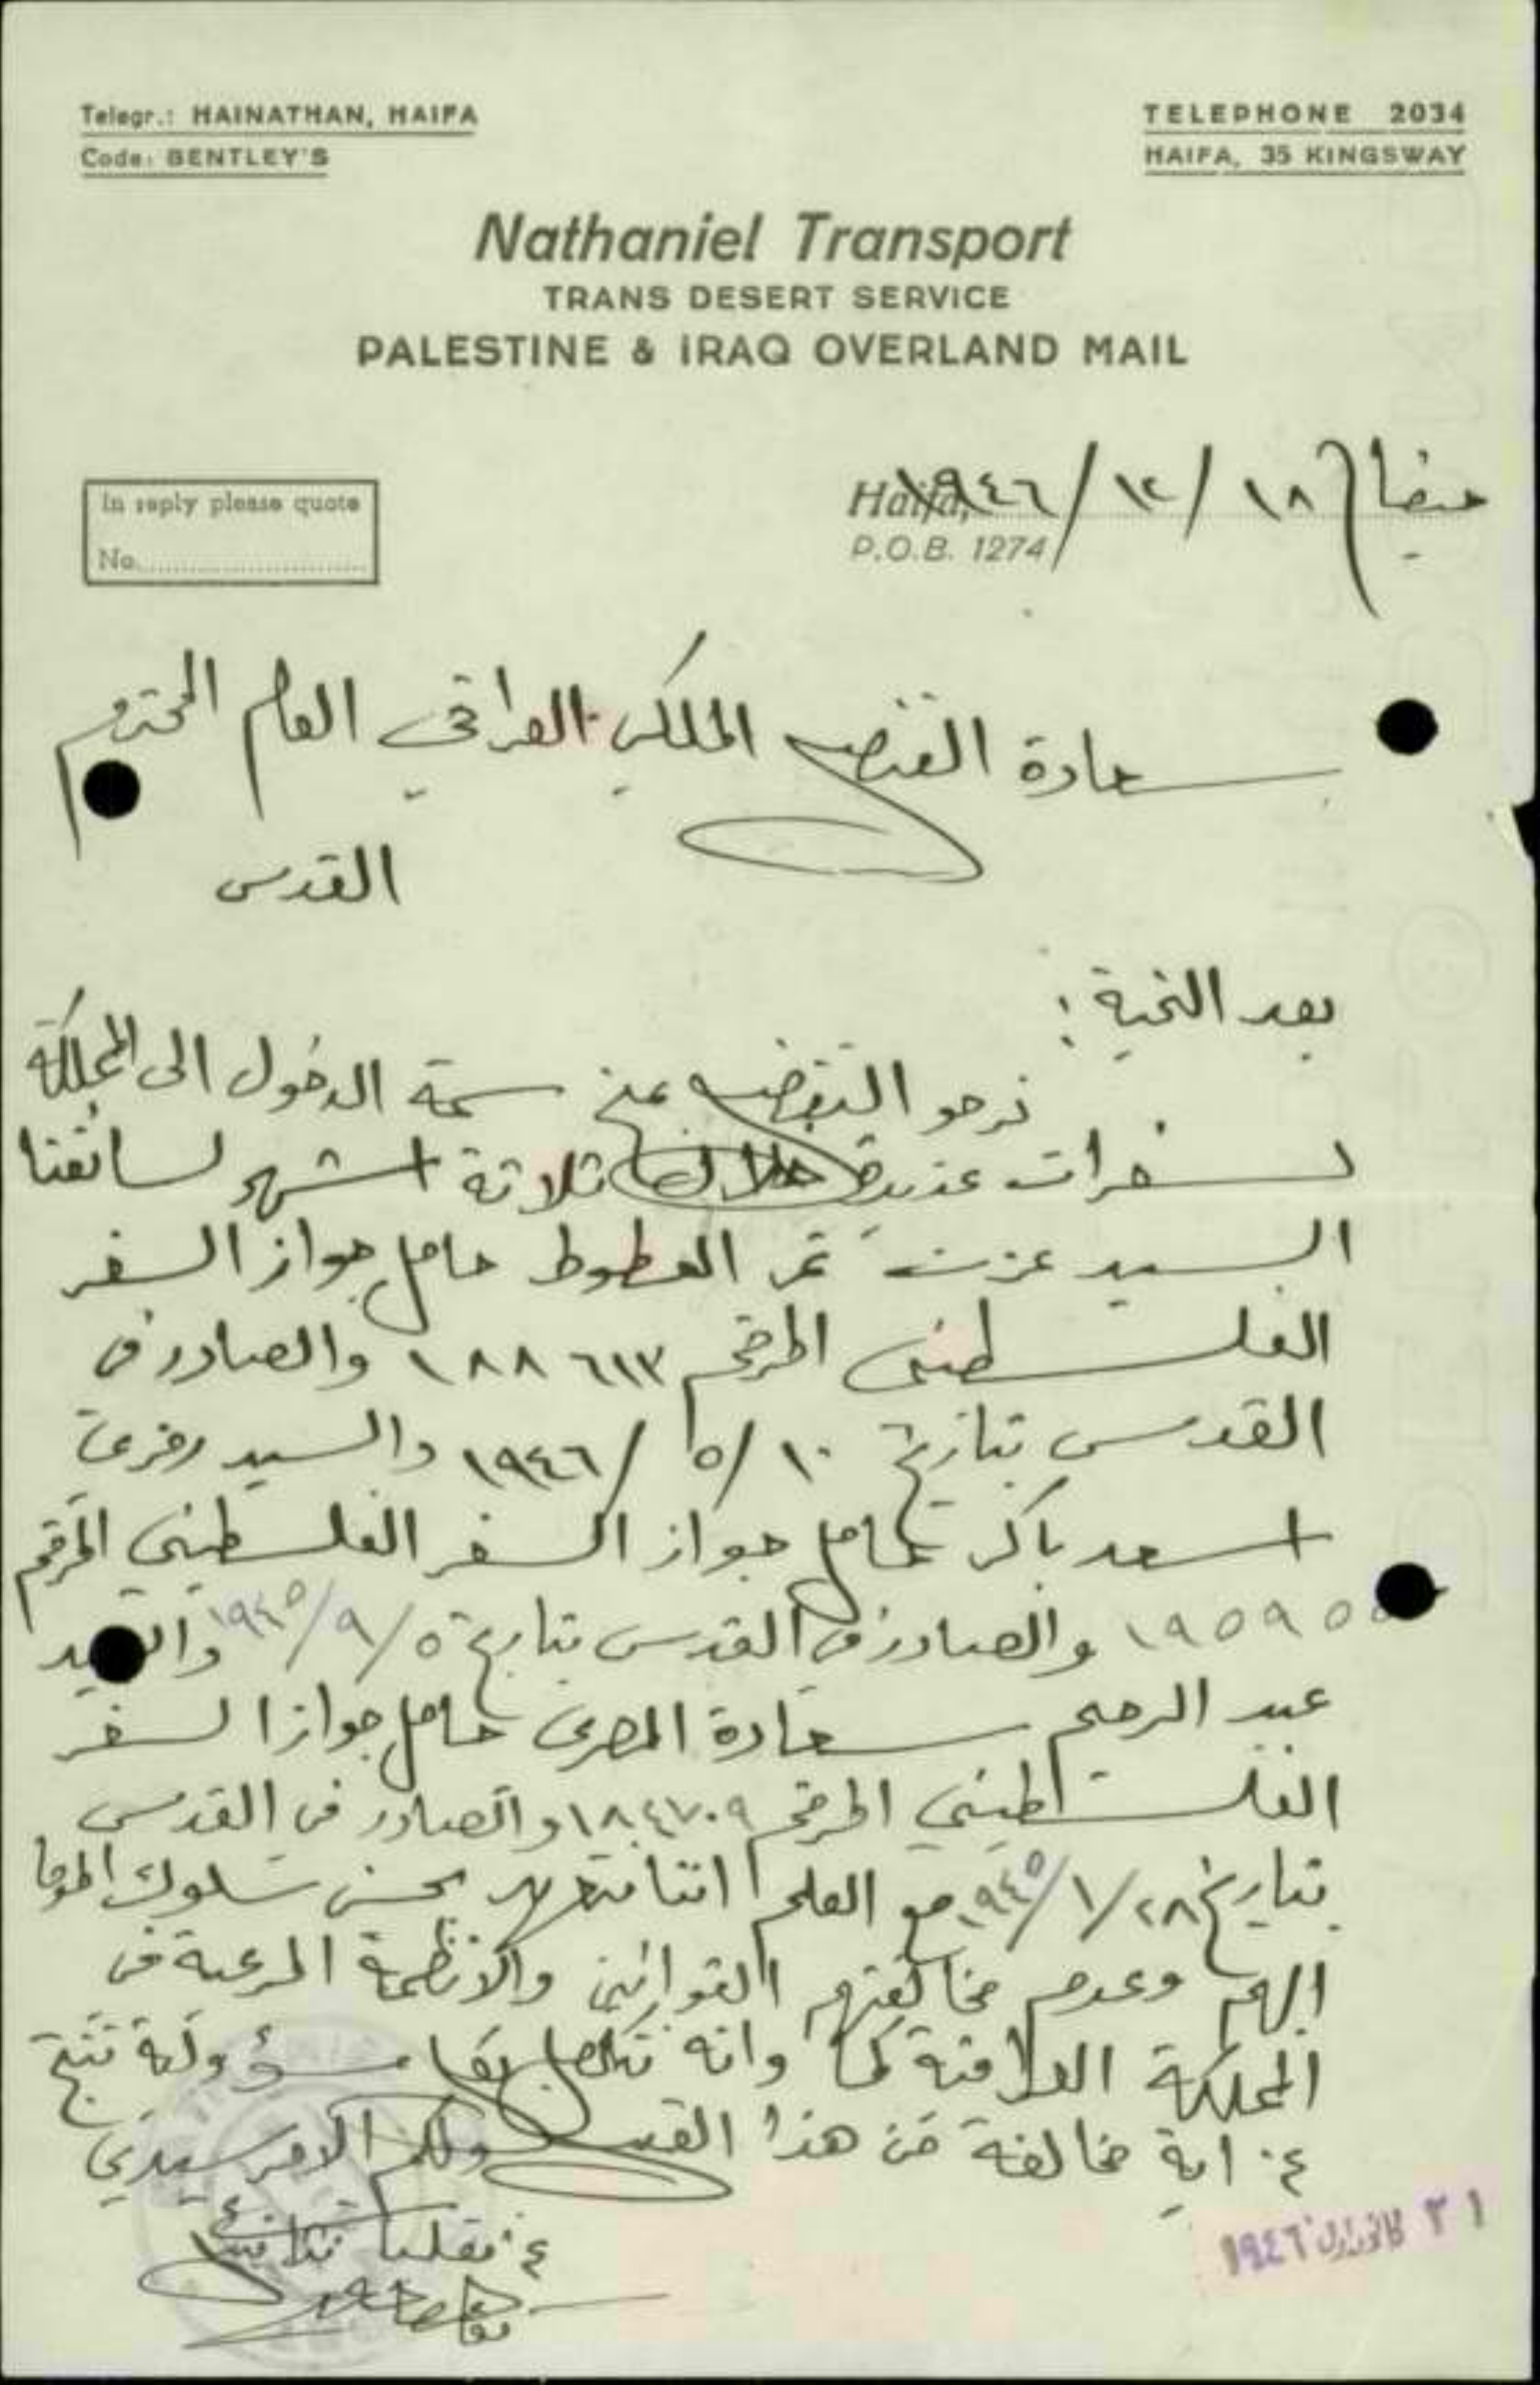 Telegr.: HAINATHAN, HAIFA
Code: BENTLEY'S
TELEPHONE 2034
HAIFA, 35 KINGSWAY
Nathaniel Transport
TRANS DESERT SERVICE
PALESTINE & IRAQ OVERLAND MAIL
In reply please quote
No.
Haifa,
P.O.B. 1274
حيفا في ١٨/١٢/١٩٤٦
سعادة القنصل الملكي العراقي العام المحترم
القدس
بعد التحية:
نرجو التفضل بمنح سمة الدخول الى المملكة
لسفرات عديدة خلال ثلاثة اشهر لسائقنا
السيد عزت نمر العطوط حامل جواز السفر
الفلسطيني المرقم ١٨٨٦١٣ والصادر في
القدس بتاريخ ١٠/٥/١٩٤٦ والسيد
اسعد باكر حامل جواز السفر الفلسطيني المرقم
١٩٥٩٥ والصادر في القدس بتاريخ ٥/٩/١٩٤٥ والسيد
عبد الرحيم سعادة المصري حامل جواز السفر
الفلسطيني المرقم ١٨٤٧٠٩ والصادر في القدس
بتاريخ ٢٨/١/١٩٤٥ مع العلم اننا نتعهد بحسن سلوك الموما
اليهم وعدم مخالفتهم القوانين والانظمة المرعية في
المملكة العراقية كما وانه نتحمل مسؤولية تنتج
عن اية مخالفة من هذا القبيل ولكم الامر سيدي
ع. نقليات
٢١ كانون اول ١٩٤٦